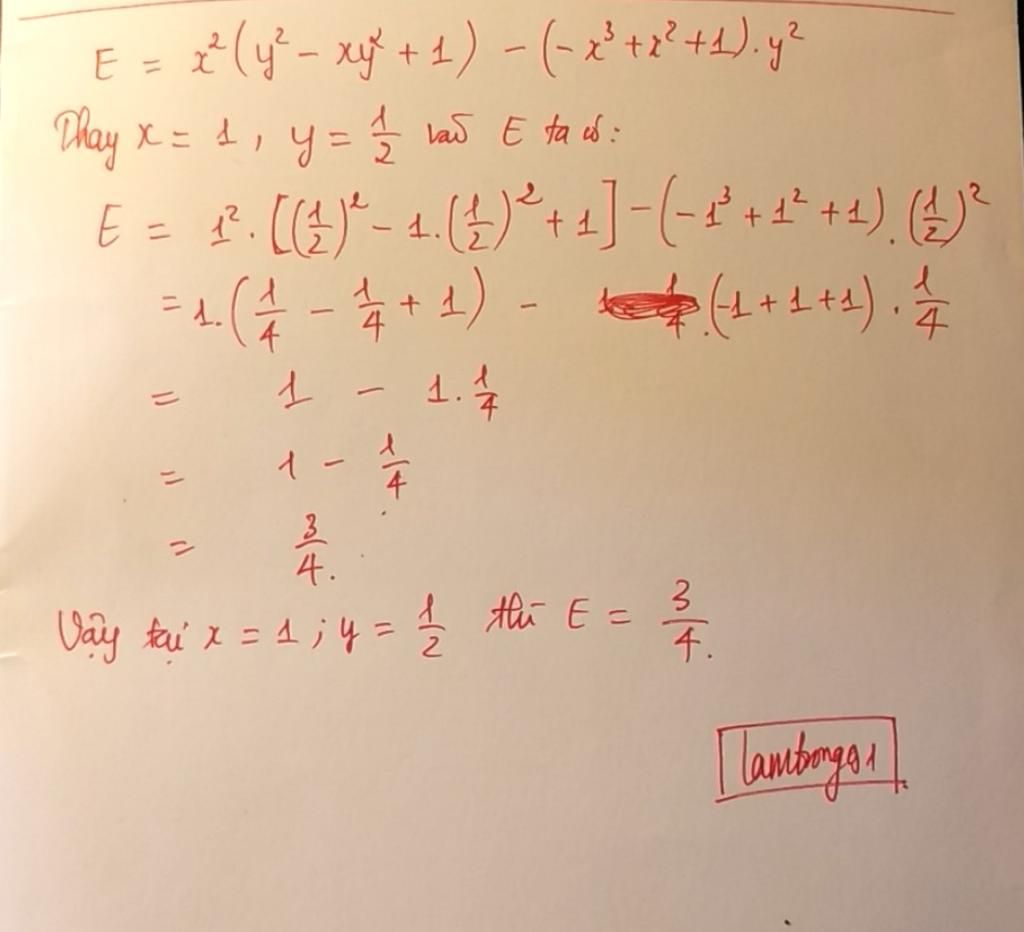 E = x²(y² - xy² + 1) - (-x³ + x² + 1).y²
Thay x = 1, y = 1/2 vào E ta có:
E = 1².[(1/2)² - 1.(1/2)² + 1] - (-1³ + 1² + 1).(1/2)²
= 1.(1/4 - 1/4 + 1) - (-1 + 1 + 1).1/4
= 1 - 1.1/4
= 1 - 1/4
= 3/4.
Vậy tại x = 1; y = 1/2 thì E = 3/4.